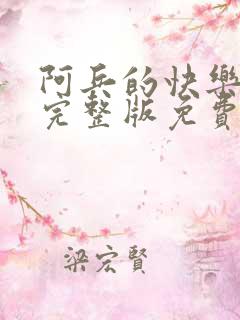 阿兵的快樂
完整版免費
梁宏賢